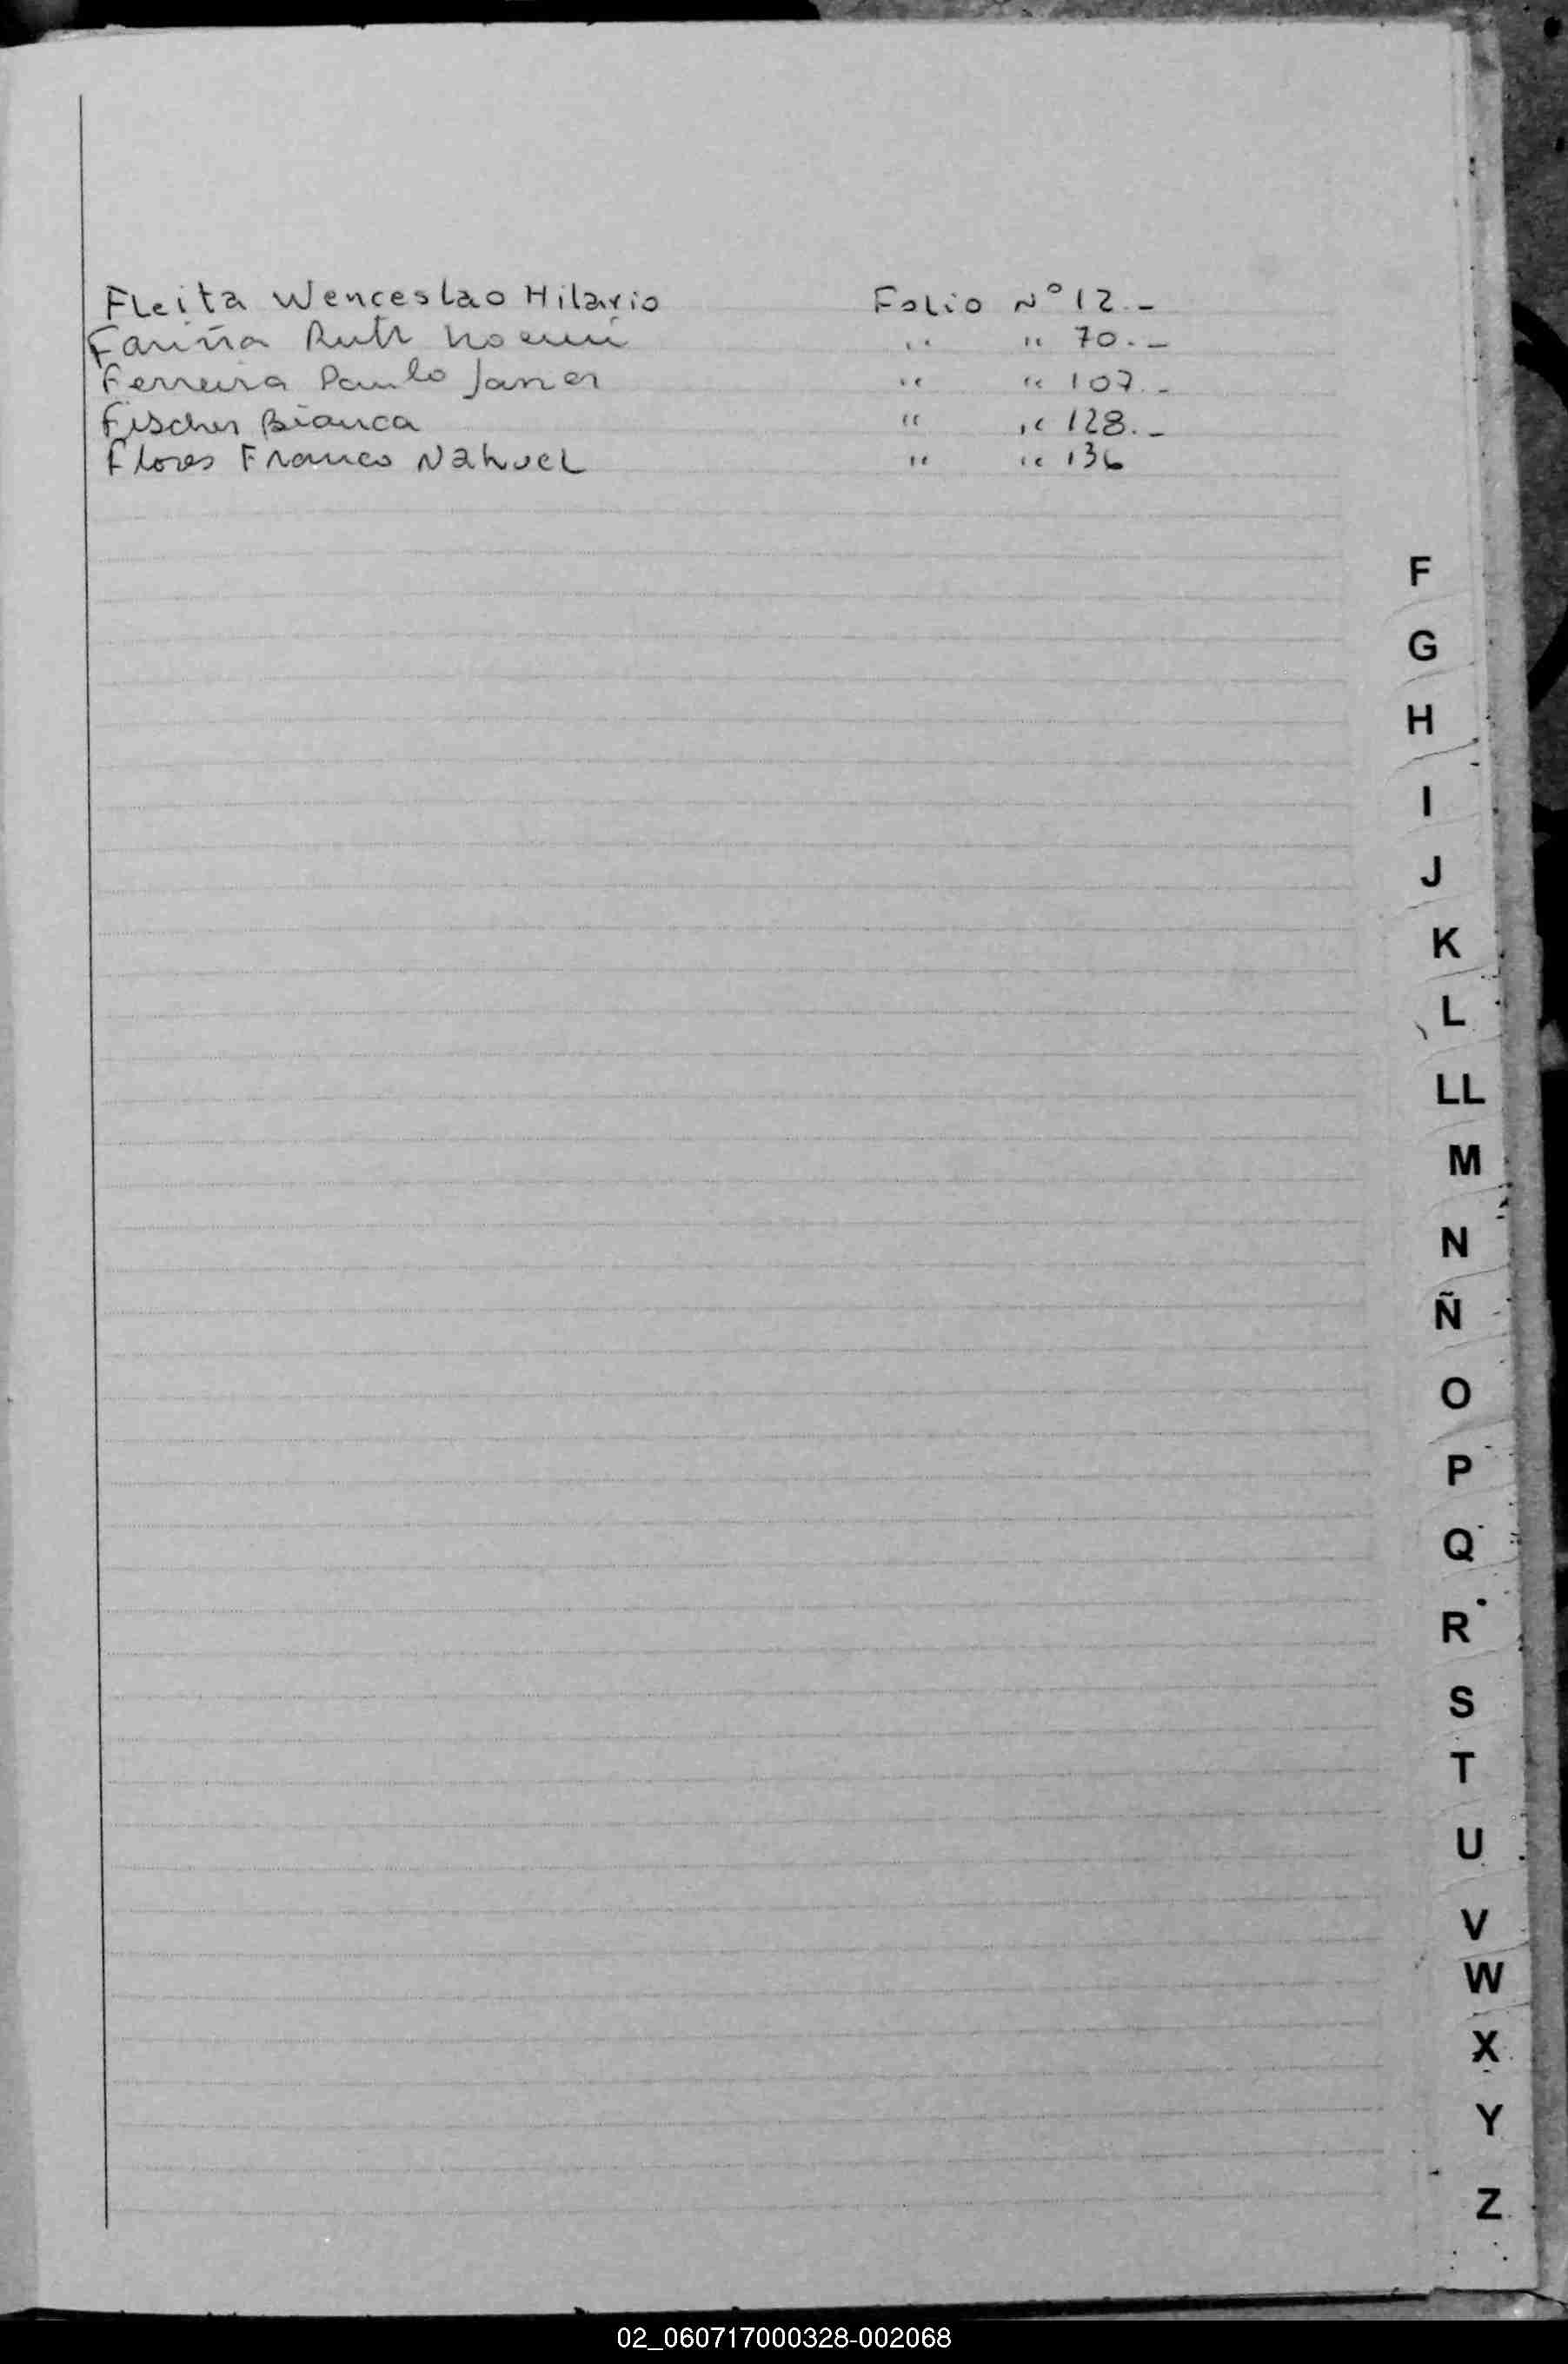 Fleita Wenceslao Hilario Folio N° 12.-
Fariña Ruth Noemi " " 70.-
Ferreira Paulo Javier " " 107.-
Fischer Bianca " " 128.-
Flores Franco Nahuel " " 136
F
G
H
I
J
K
L
LL
M
N
Ñ
O
P
Q
R
S
T
U
V
W
X
Y
Z
02_060717000328-002068